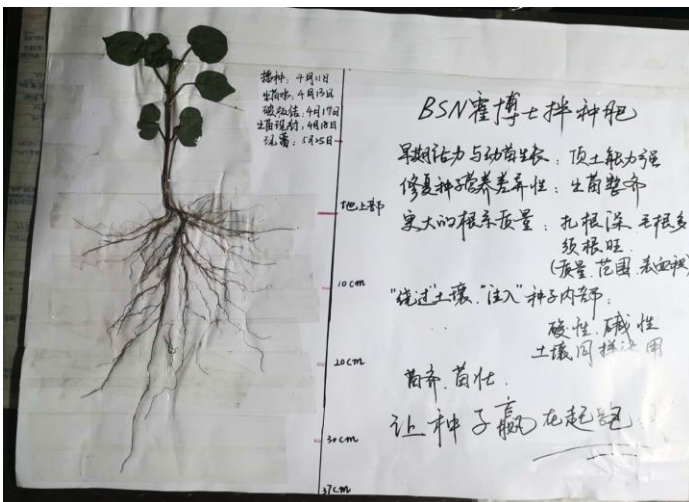 播种：4月11日
生苗水：4月13日
破板结：4月17日
生苗现行：4月18日
现蕾：5月25日
地上部
10cm
20cm
30cm
37cm
BSN霍博士拌种肥
早期活力与幼苗生长：顶土能力强
修复种子营养差异性：生苗整齐
更大的根系质量：扎根深 毛根多
须根旺
(质量.范围.表面积)
"绕过"土壤."注入"种子内部：
酸性.碱性
土壤同样适用
苗齐.苗壮.
让种子赢在起跑